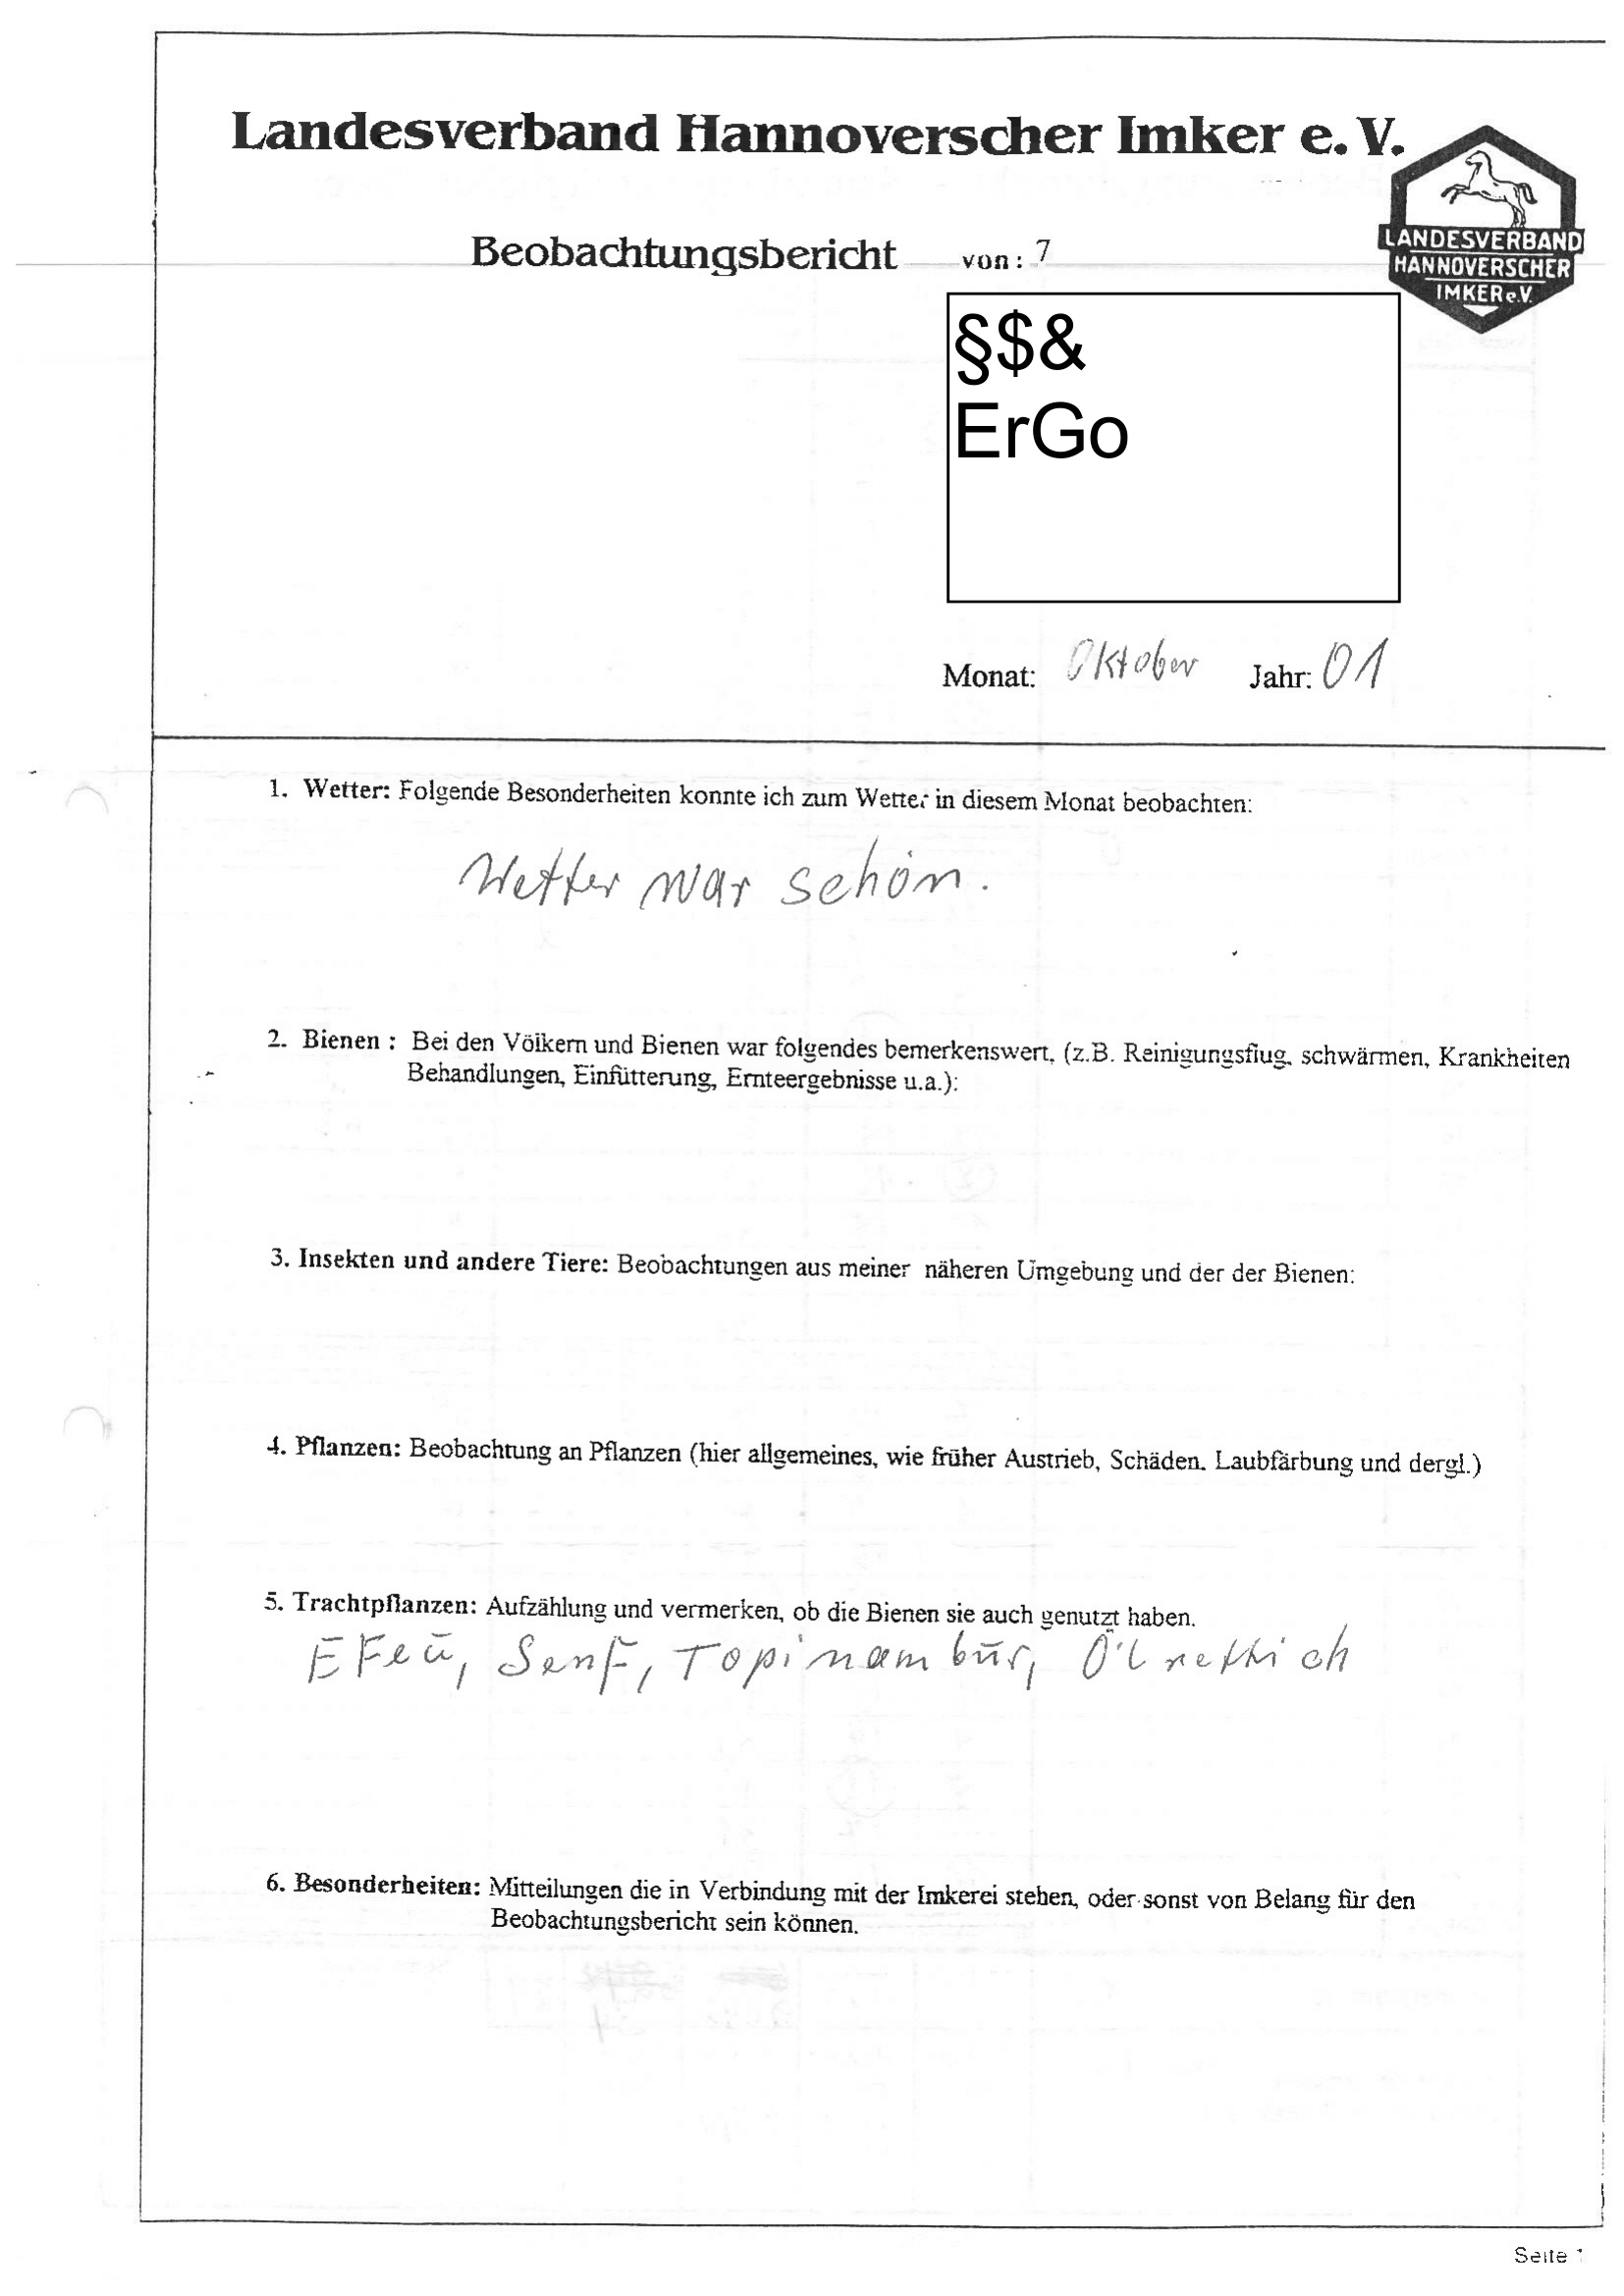 Landesverband Hannoverscher Imker e. V.
LANDESVERBAND
HANNOVERSCHER
IMKER e.V.
Beobachtungsbericht von: 7
§$&
ErGo
Monat: Oktober Jahr: 01
1. Wetter: Folgende Besonderheiten konnte ich zum Wetter in diesem Monat beobachten:
Wetter war schön.
2. Bienen : Bei den Völkern und Bienen war folgendes bemerkenswert, (z.B. Reinigungsflug, schwärmen, Krankheiten
Behandlungen, Einfütterung, Ernteergebnisse u.a.):
3. Insekten und andere Tiere: Beobachtungen aus meiner näheren Umgebung und der der Bienen:
4. Pflanzen: Beobachtung an Pflanzen (hier allgemeines, wie früher Austrieb, Schäden. Laubfärbung und dergl.)
5. Trachtpflanzen: Aufzählung und vermerken, ob die Bienen sie auch genutzt haben.
Efeu, Senf, Topinambur, Ölrettich
6. Besonderheiten: Mitteilungen die in Verbindung mit der Imkerei stehen, oder sonst von Belang für den
Beobachtungsbericht sein können.
Seite 1